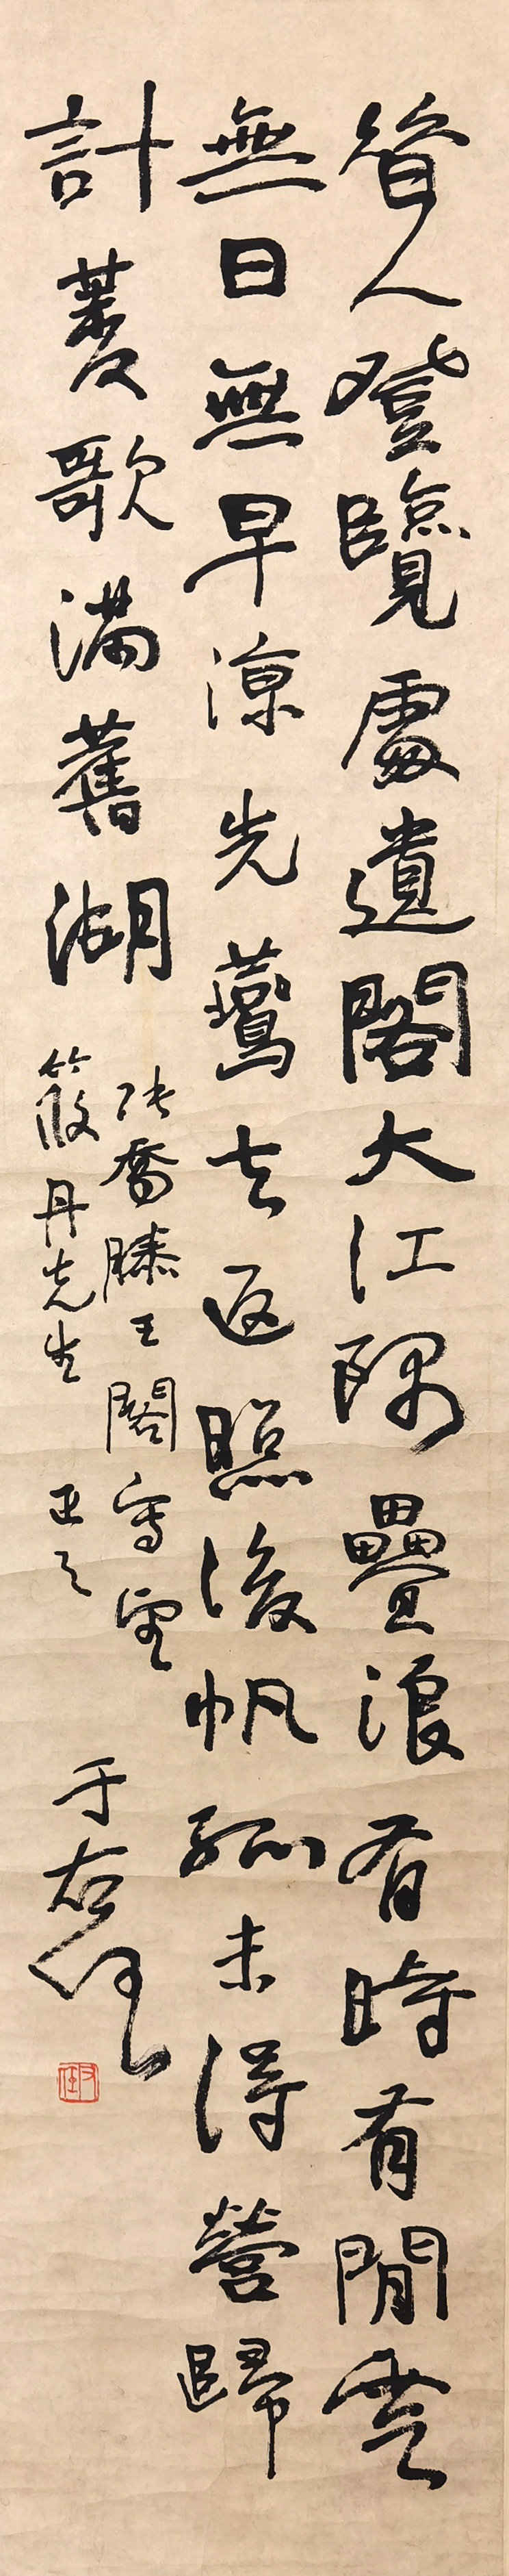 昝人登覽處遺閣大江隅疊浪有時有閒雲
無日無早涼先鷰去返照後帆孤未得營歸
計菱歌滿舊湖
張喬滕王閣寄望
筱丹先生 正之
于右任
右任